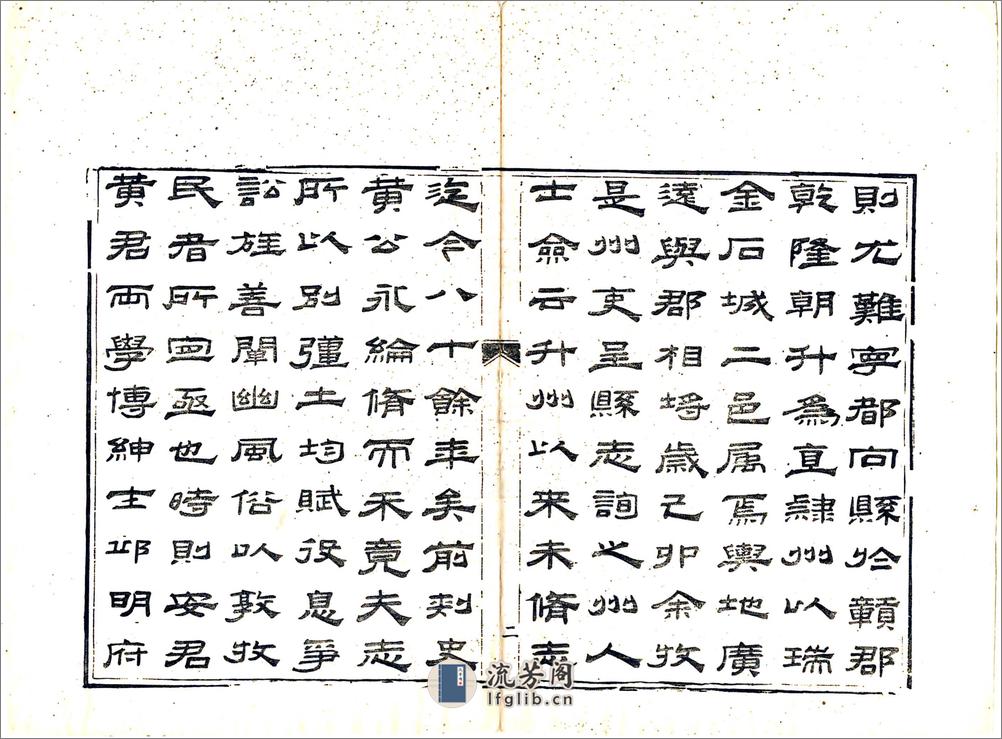 則尤難寧都向縣於贛郡
乾隆朝升為直隸州以瑞
金石城二邑屬焉輿地廣
遠與郡相埒歲己卯余牧
是州吏呈縣志詢之州人
士僉云升州以來未脩志
二
迄今八十餘年矣前刺史
黃公永綸脩而未竟夫志
所以別疆土均賦役息爭
訟旌善闡幽風俗以敦牧
民者所宜亟也時則安君
黃君两學博紳士邱明府
流芳阁
lfglib.cn